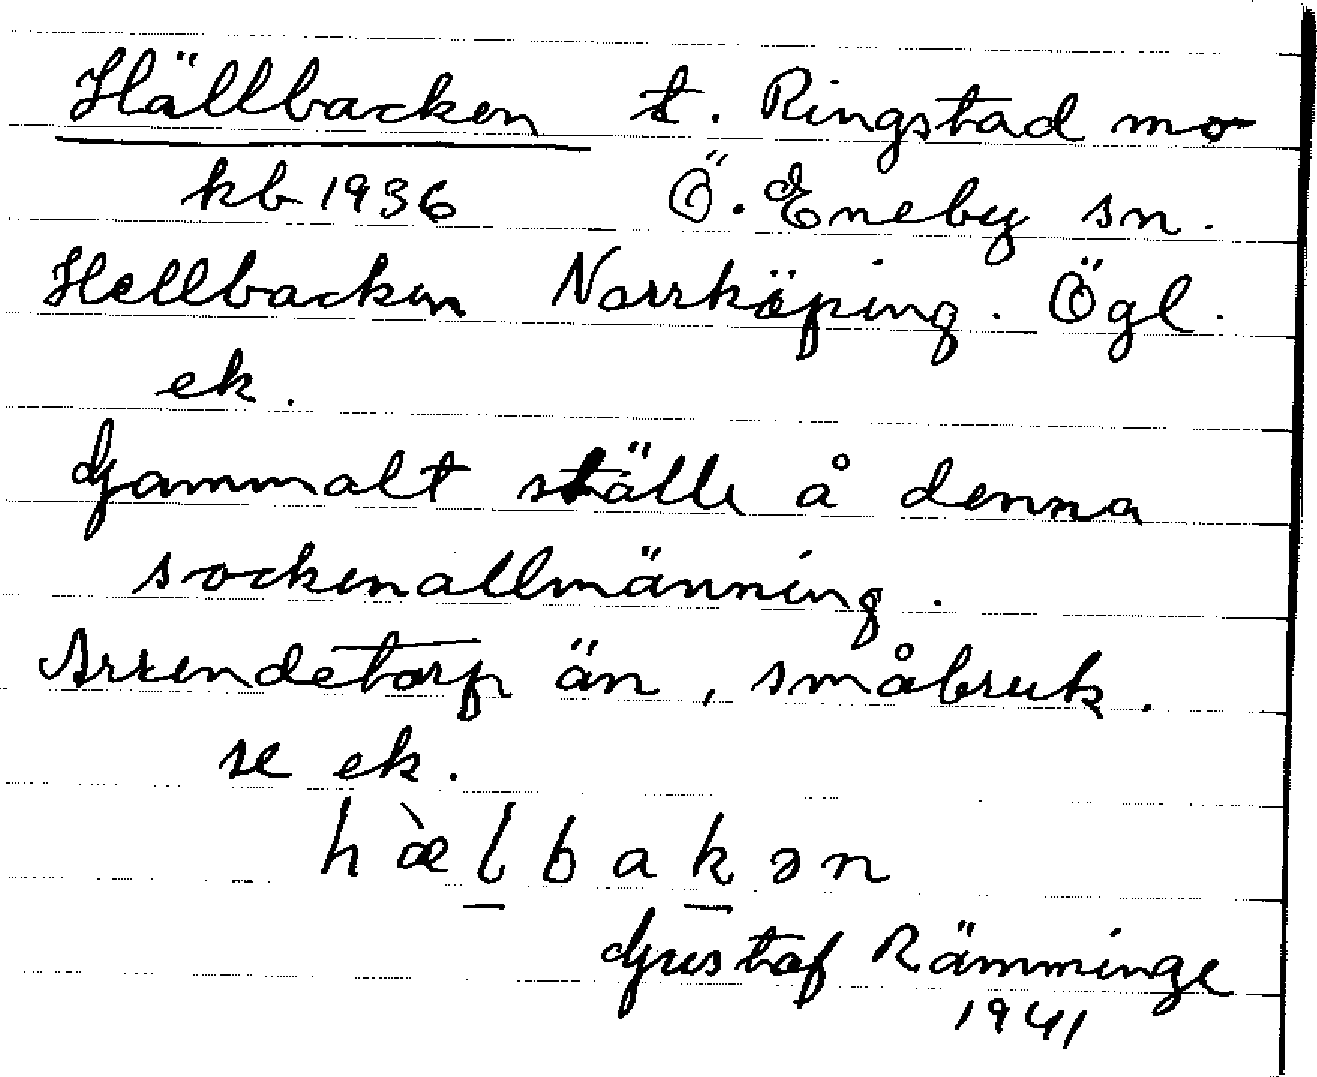 Hällbacken t. Ringstad mo
kb 1936 Ö. Eneby sn.
Hellbacken Norrköping. Ögl.
ek.
Gammalt ställe å denna
sockenallmänning.
Arrendetorp än, småbruk.
se ek.
hæ̀l̲bak̲ən
Gustaf Rämminge
1941